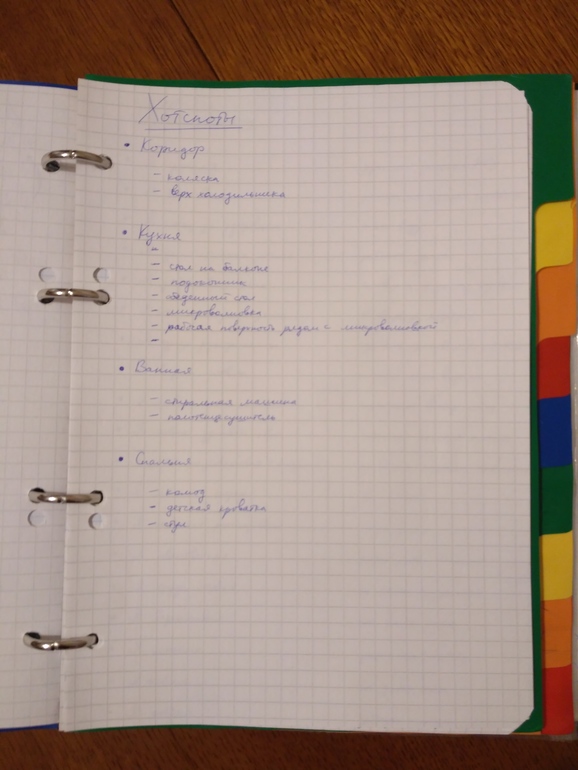 Хотспоты
• Коридор
- коляска
- верх холодильника
• Кухня
-
- стол на балконе
- подоконник
- обеденный стол
- микроволновка
- рабочая поверхность рядом с микроволновкой
-
• Ванная
- стиральная машина
- полотенцесушитель
• Спальня
- комод
- детская кроватка
- стул